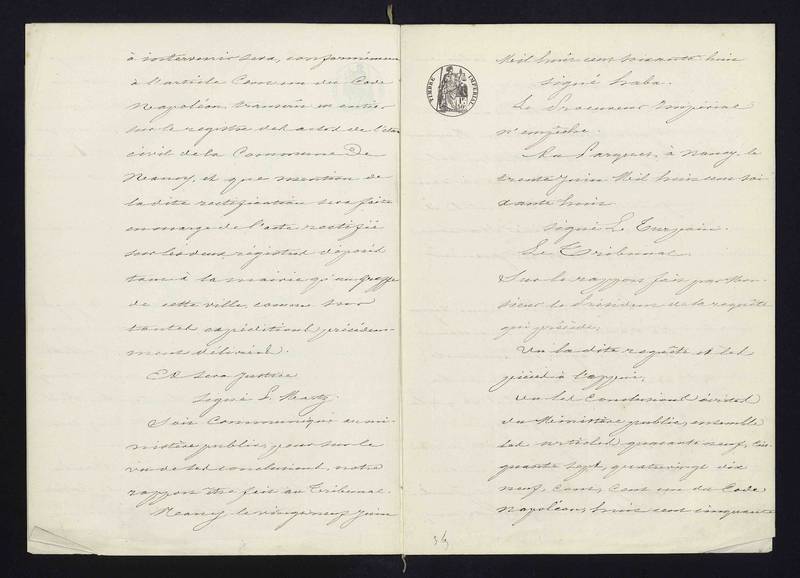 à intervenir sera, conformément
à l'article Cent un du Code
Napoléon, transcrit en entier
sur le registre des actes de l'état
civil de la Commune de
Nancy, et que mention de
la dite rectification sera faite
en marge de l'acte rectifié
sur les deux registres déposés
tant à la mairie qu'au greffe
de cette ville, comme sur
toutes expéditions précédem-
ment délivrées.
Et sera justice
signé L. Martz
Soit Communiqué au mi-
nistère public, pour sur le
vu de ses conclusions, notre
rapport être fait au Tribunal.
Nancy le vingt neuf Juin
Mil huit cent soixante huit
signé
Le Procureur Impérial
n'empêche.
Au Parquet, à Nancy, le
trente Juin Mil huit cent soi
xante huit
signé L. Turpain.
Le Tribunal
Sur le rapport fait par Mon-
sieur le Président de la requête
qui précède,
Vu la dite requête et les
pièces à l'appui,
Vu les Conclusions écrites
du Ministère public, ensemble
les articles quarante neuf, Cin-
quante sept, quatrevingt dix
neuf, cent, cent un du Code
Napoléon, huit cent cinquante
TIMBRE IMPÉRIAL